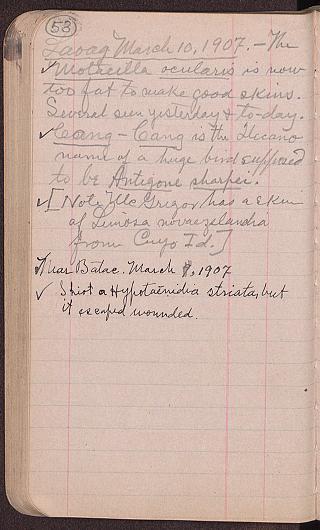 53
Laoag March 10, 1907. - The
✓ Motacilla ocularis is now
too fat to make good skins.
Several seen yesterday & to-day.
✓ Cang-Cang is the Ilocano
name of a huge bird supposed
to be Antigone sharpei.
✓ [Note, McGregor has a skin
of Limosa novaezelandia
from Cuyo Id.]
Near Batac. March 8, 1907
✓ Shot a Hypotaenidia striata, but
it escaped wounded.